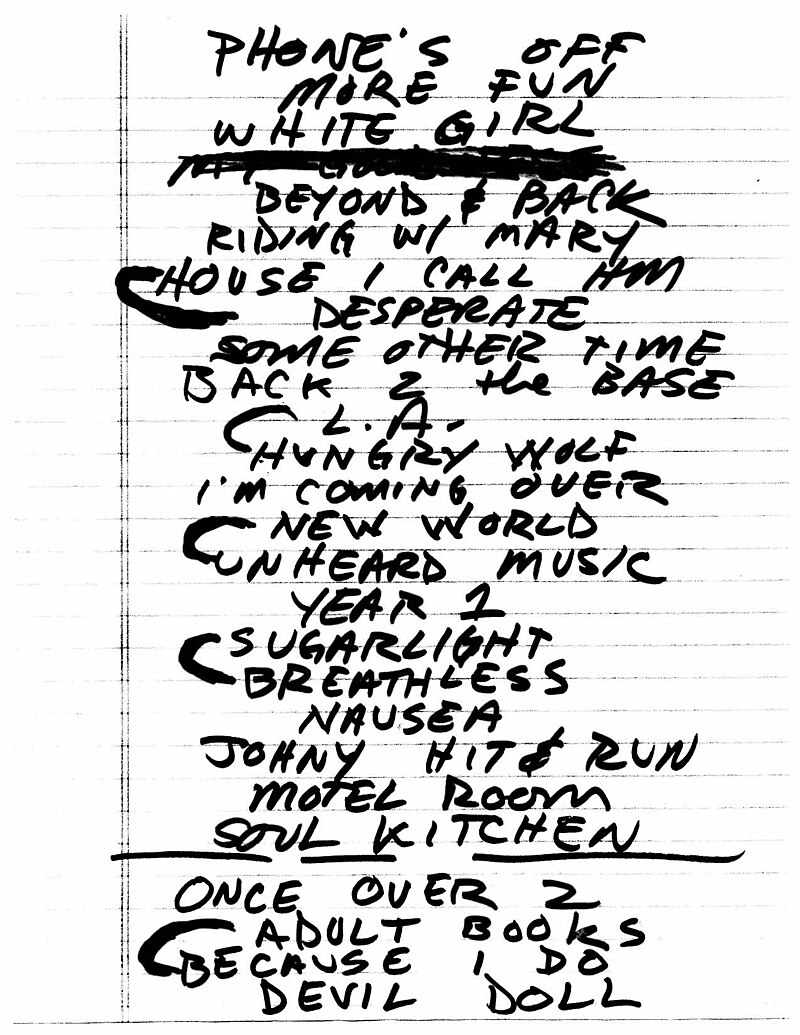 PHONE'S OFF
MORE FUN
WHITE GIRL
BEYOND & BACK
RIDING W/ MARY
HOUSE I CALL HM
DESPERATE
SOME OTHER TIME
BACK 2 the BASE
L.A.
HUNGRY WOLF
I'M COMING OVER
NEW WORLD
UNHEARD MUSIC
YEAR 1
SUGARLIGHT
BREATHLESS
NAUSEA
JOHNY HIT & RUN
MOTEL ROOM
SOUL KITCHEN
ONCE OVER 2
ADULT BOOKS
BECAUSE I DO
DEVIL DOLL